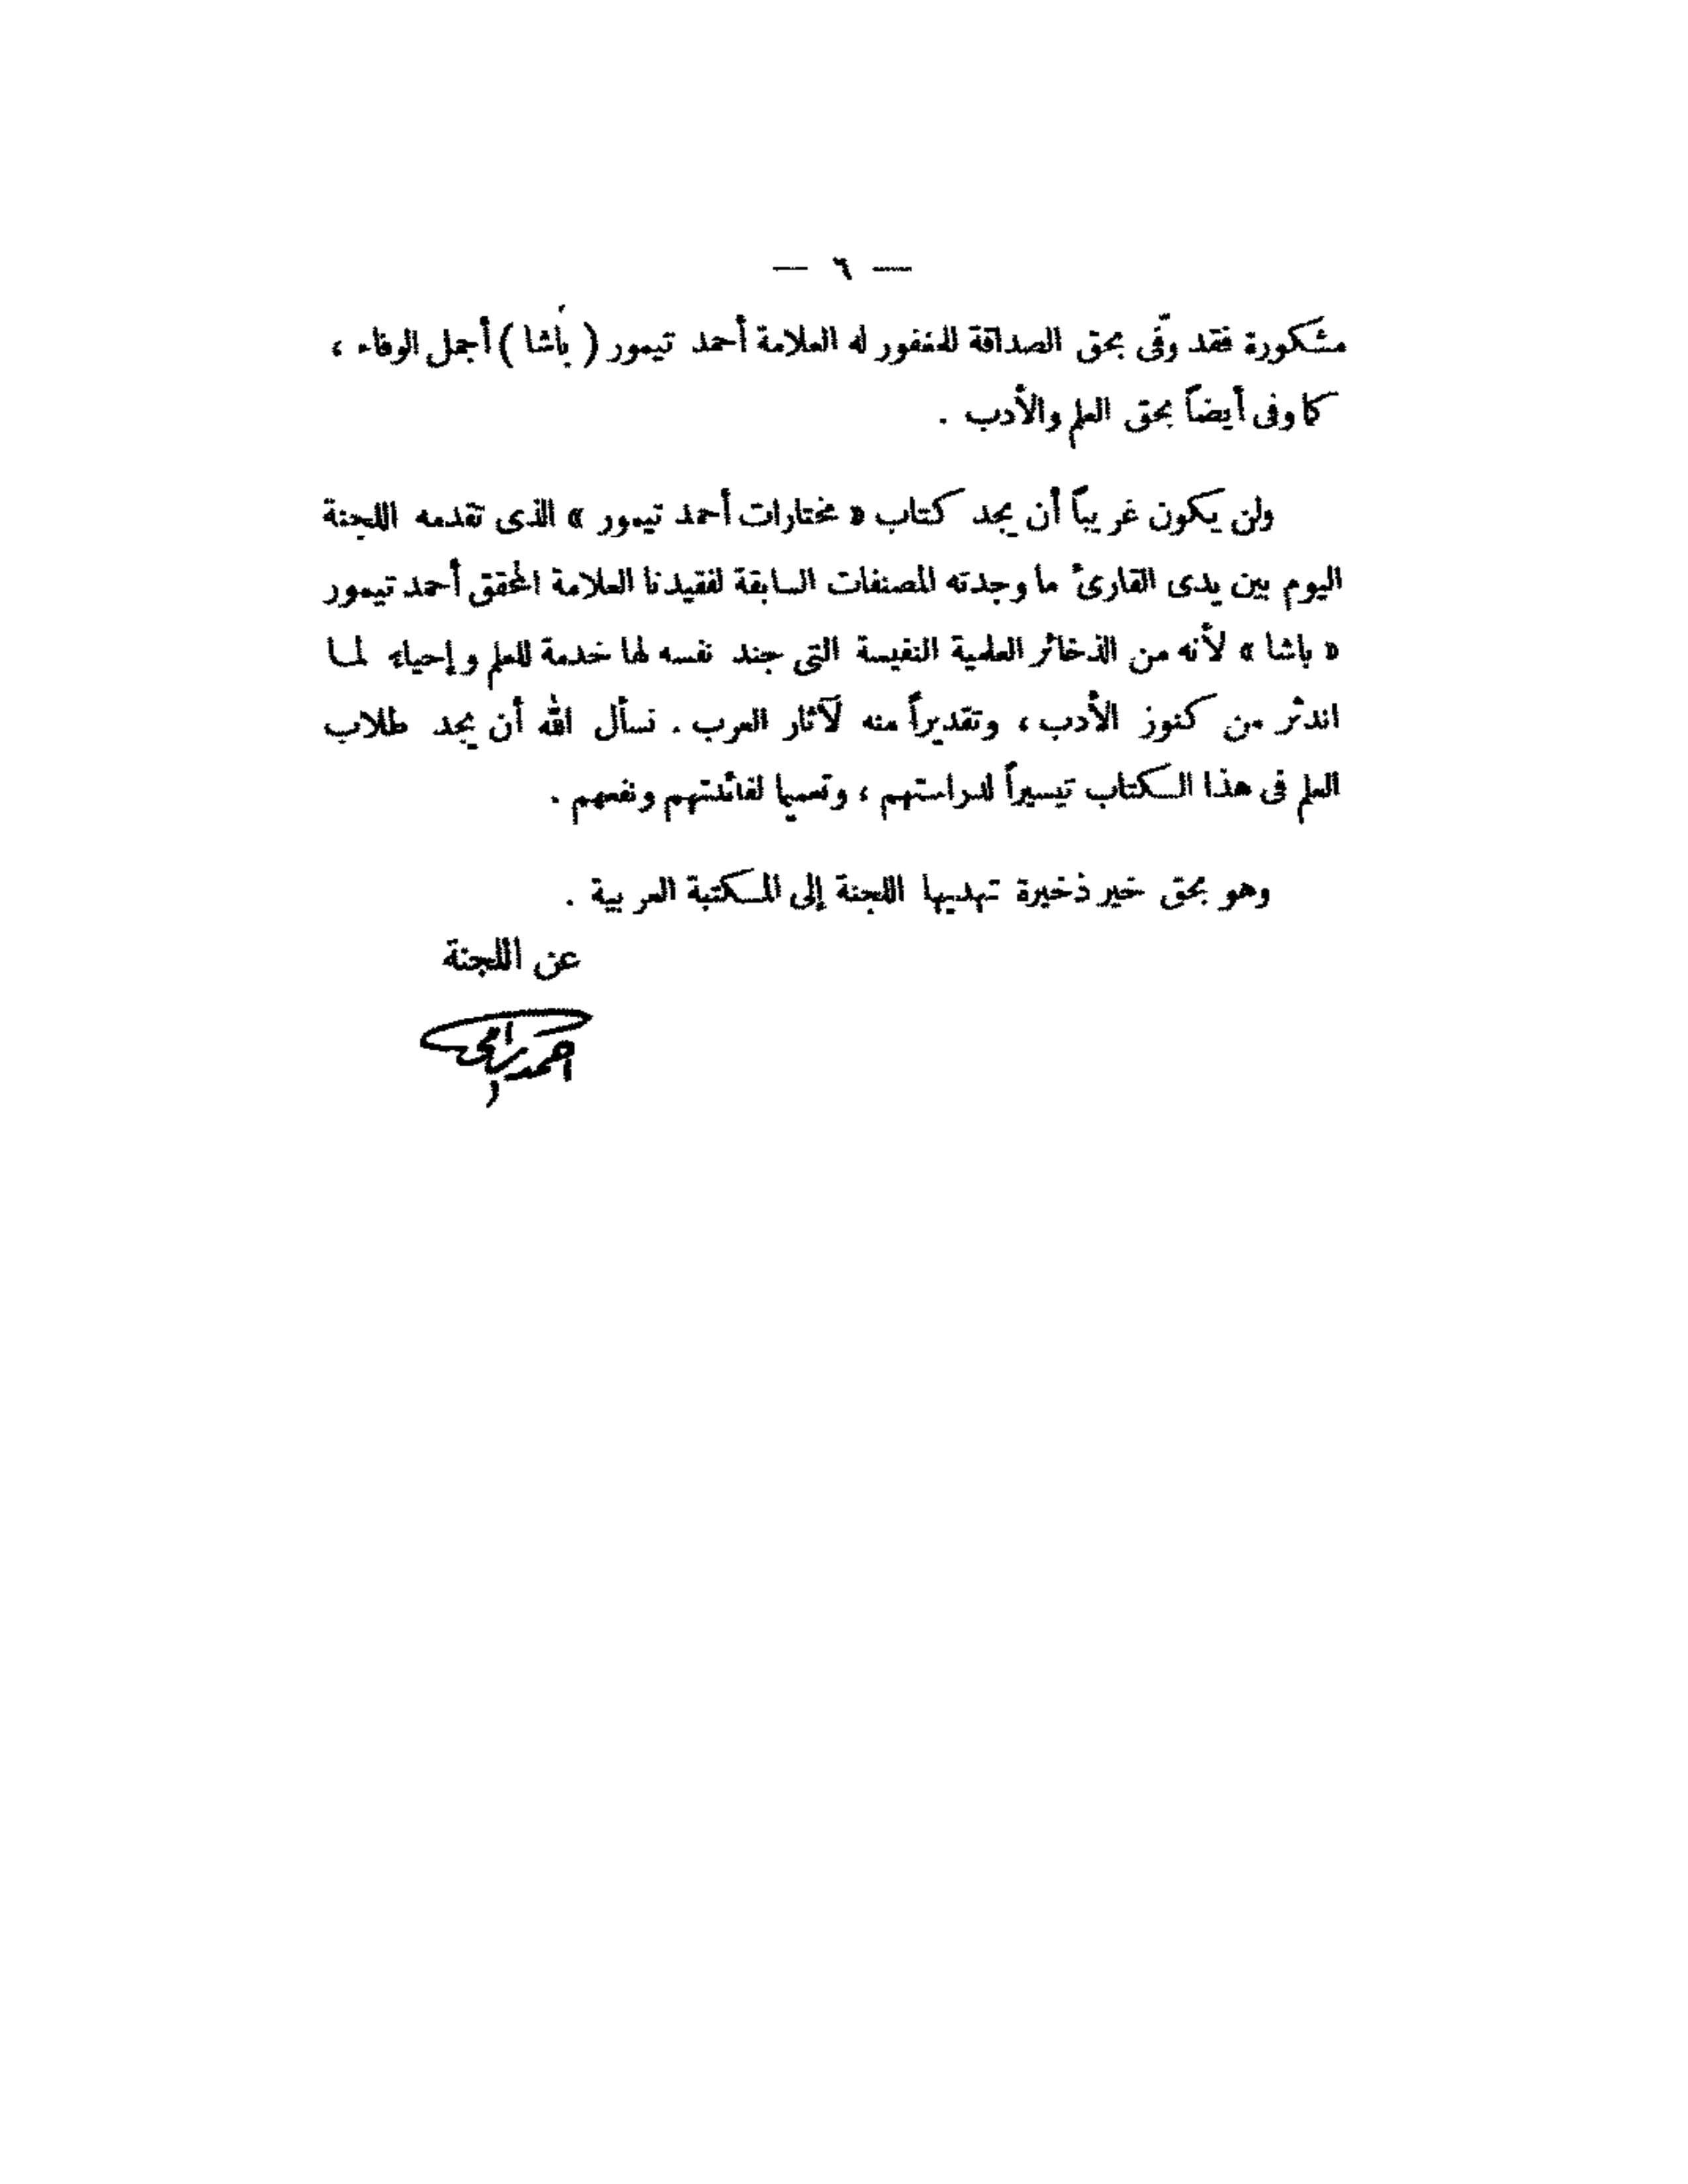 — ٦ —
مشكورة فقد وفّى بحق الصداقة للمغفور له العلامة أحمد تيمور ( باشا ) أجمل الوفاء ،
كما وفى أيضاً بحق العلم والأدب .
ولن يكون غريباً أن يجد كتاب « مختارات أحمد تيمور » الذى تقدمه اللجنة
اليوم بين يدى القارئ ما وجدته المصنفات السابقة لفقيدنا العلامة المحقق أحمد تيمور
« باشا » لأنه من الذخائر العلمية النفيسة التى جند نفسه لها خدمة للعلم وإحياء لما
اندثر من كنوز الأدب ، وتقديراً منه لآثار العرب . نسأل الله أن يجد طلاب
العلم فى هذا الكتاب تيسيراً لدراستهم ، وتعميما لفائدتهم ونفعهم .
وهو بحق خير ذخيرة تهديها اللجنة إلى المكتبة العربية .
عن اللجنة
احمد رامى